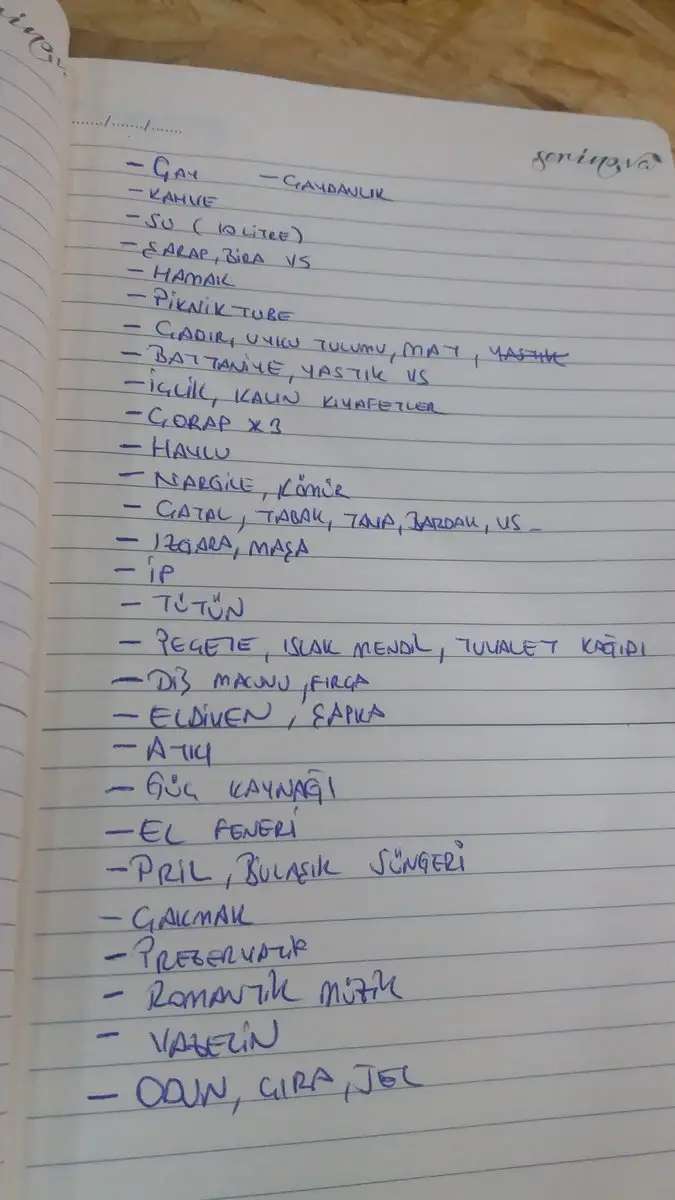 ...../...../.....
seninova
- ÇAY - ÇAYDANLIK
- KAHVE
- SU (10 LİTRE)
- ŞARAP, BİRA VS
- HAMAK
- PİKNİK TUBE
- ÇADIR, UYKU TULUMU, MAT, YASTIK
- BATTANİYE, YASTIK VS
- İÇLİK, KALIN KIYAFETLER
- ÇORAP x 3
- HAVLU
- NARGİLE, KÖMÜR
- ÇATAL, TABAK, TAVA, BARDAK, VS
- IZGARA, MAŞA
- İP
- TÜTÜN
- PEÇETE, ISLAK MENDİL, TUVALET KAĞIDI
- DİŞ MACUNU, FIRÇA
- ELDİVEN, ŞAPKA
- ATKI
- GÜÇ KAYNAĞI
- EL FENERİ
- PRİL, BULAŞIK SÜNGERİ
- ÇAKMAK
- PREZERVATİF
- ROMANTİK MÜZİK
- VAZELİN
- ODUN, ÇIRA, JEL